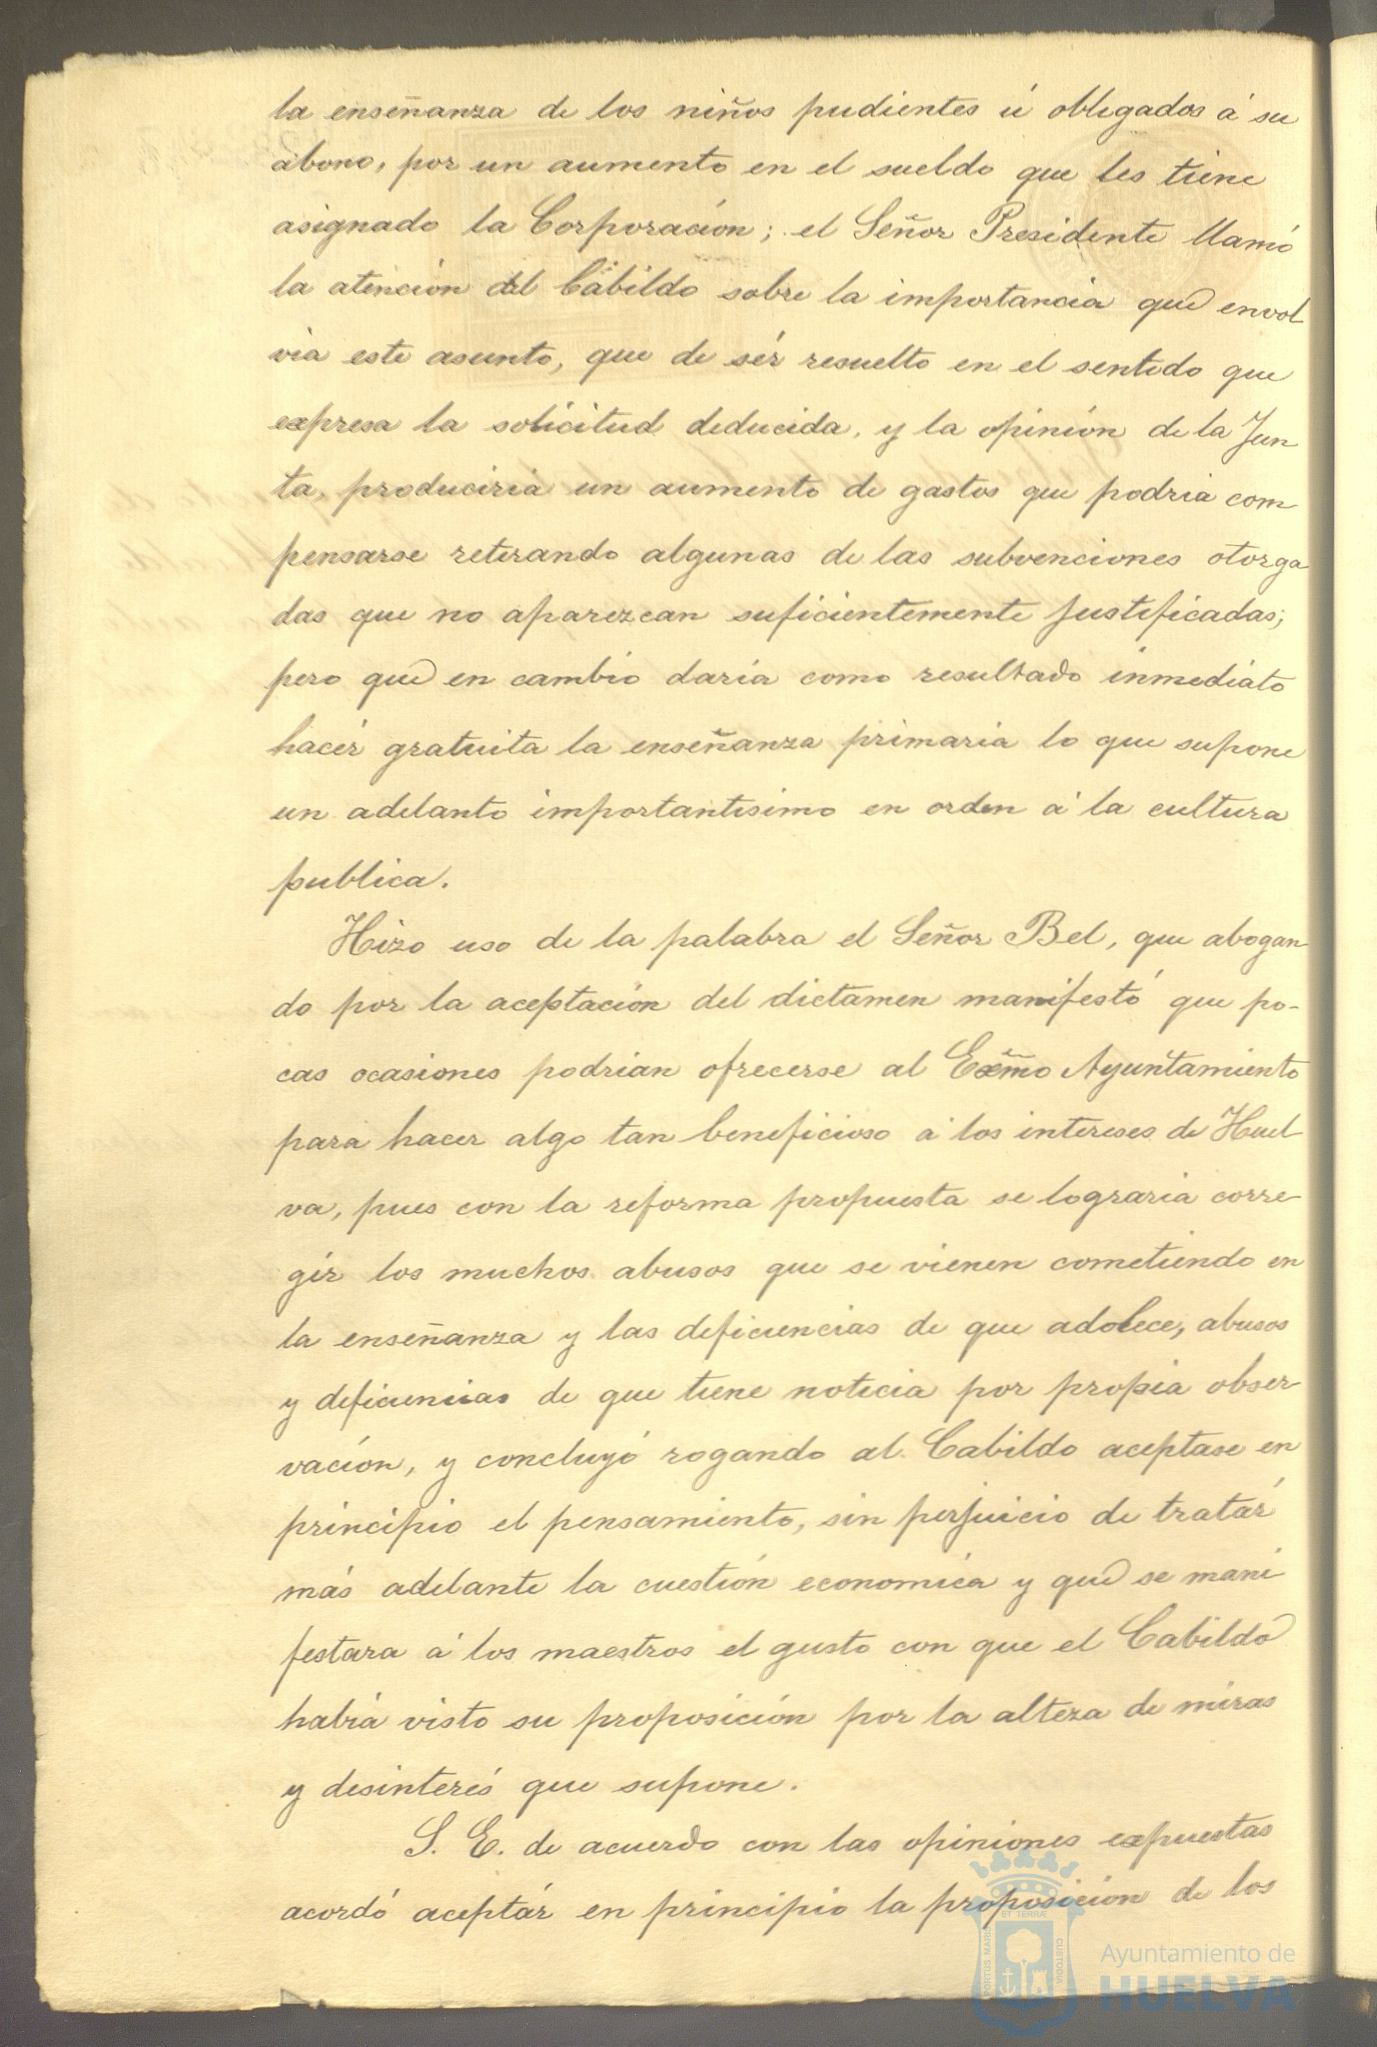 la enseñanza de los niños pudientes ú obligados á su
abono, por un aumento en el sueldo que les tiene
asignado la Corporación; el Señor Presidente llamó
la atención del Cabildo sobre la importancia que envol
via este asunto, que de sér resuelto en el sentido que
expresa la solicitud deducida, y la opinión de la Jun
ta, produciria un aumento de gastos que podria com
pensarse retirando algunas de las subvenciones otorga
das que no aparezcan suficientemente justificadas;
pero que en cambio daria como resultado inmediato
hacér gratuita la enseñanza primaria lo que supone
un adelanto importantisimo en orden á la cultura
publica.
Hizo uso de la palabra el Señor Bel, que abogan
do por la aceptación del dictamen manifestó que po-
cas ocasiones podrian ofrecerse al Exmo Ayuntamiento
para hacer algo tan beneficioso á los intereses de Huel
va, pues con la reforma propuesta se lograria corre-
gir los muchos abusos que se vienen cometiendo en
la enseñanza y las deficiencias de que adolece, abusos
y deficiencias de que tiene noticia por propia obser-
vación, y concluyó rogando al Cabildo aceptase en
principio el pensamiento, sin perjuicio de tratár
más adelante la cuestión economica y que se mani
festara á los maestros el gusto con que el Cabildo
habia visto su proposición por la alteza de miras
y desinterés que supone.
S. E. de acuerdo con las opiniones expuestas
acordó aceptár en principio la proposición de los
PORTUS MARIS ET TERRAE CUSTODIA
Ayuntamiento de
HUELVA